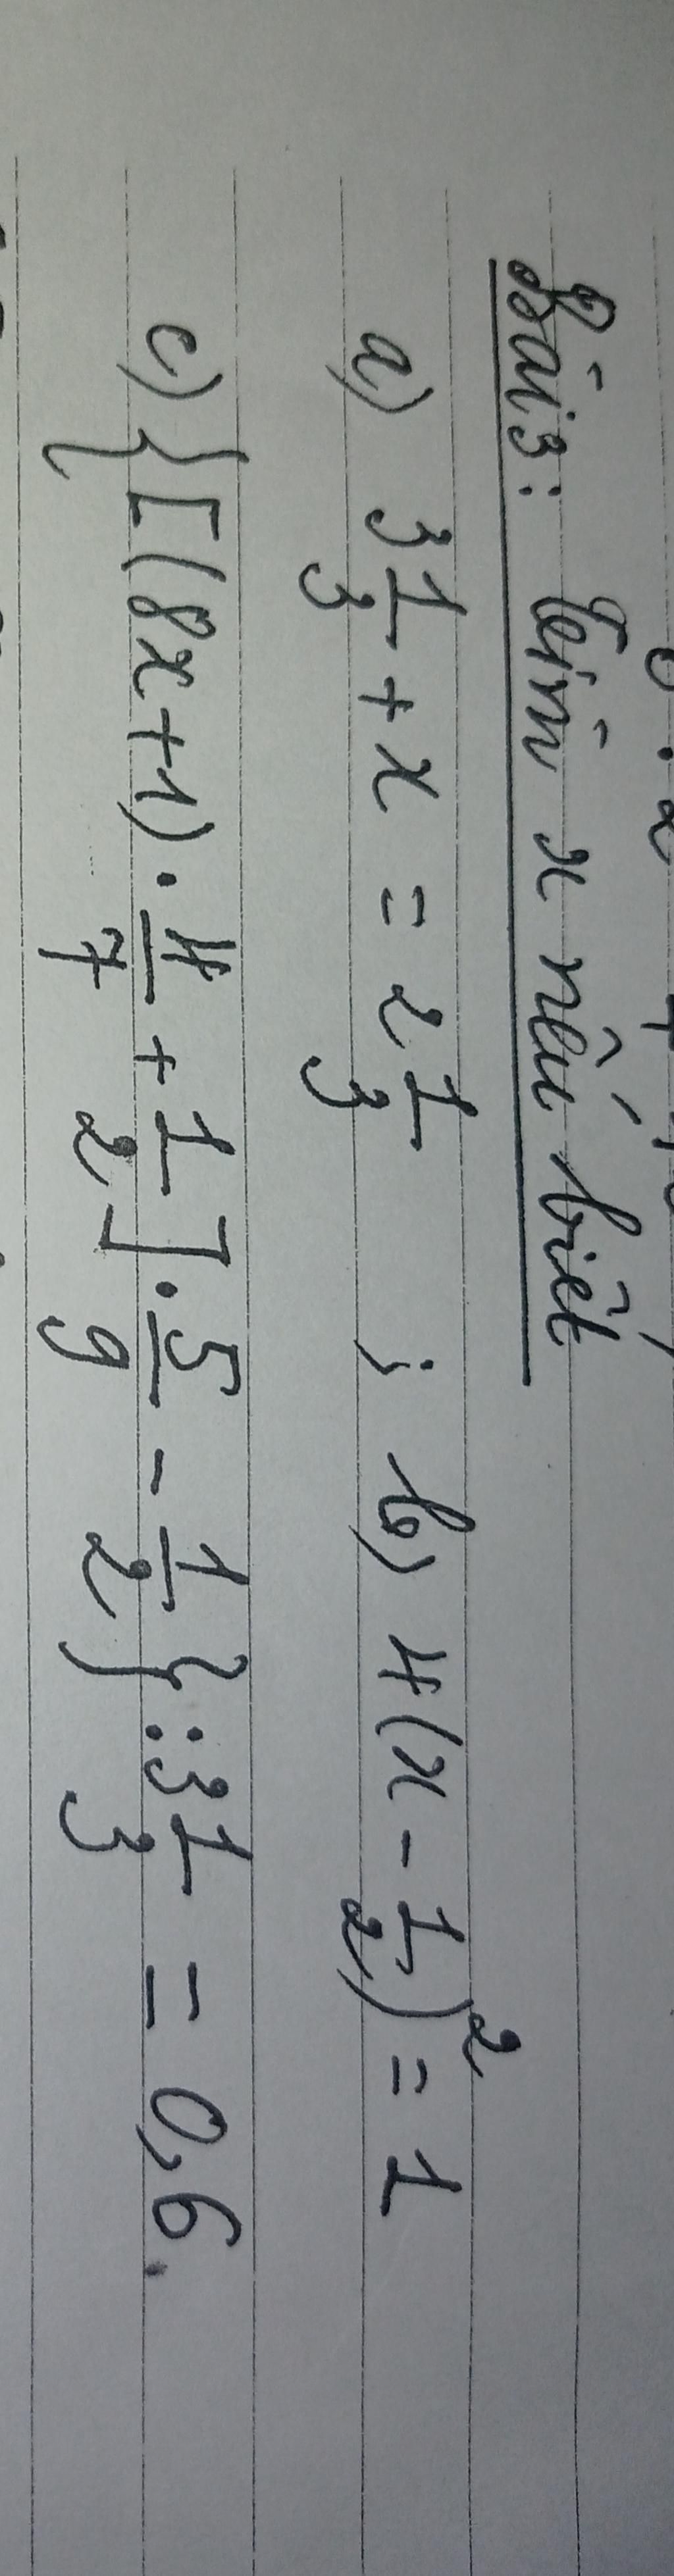 Bài 3: Tìm x nếu biết
a) 3 1/3 + x = 2 1/3 ; b) 4(x - 1/2)² = 1
c) {[(8x+1) . 4/7 + 1/2] . 5/9 - 1/2} : 3 1/3 = 0,6.